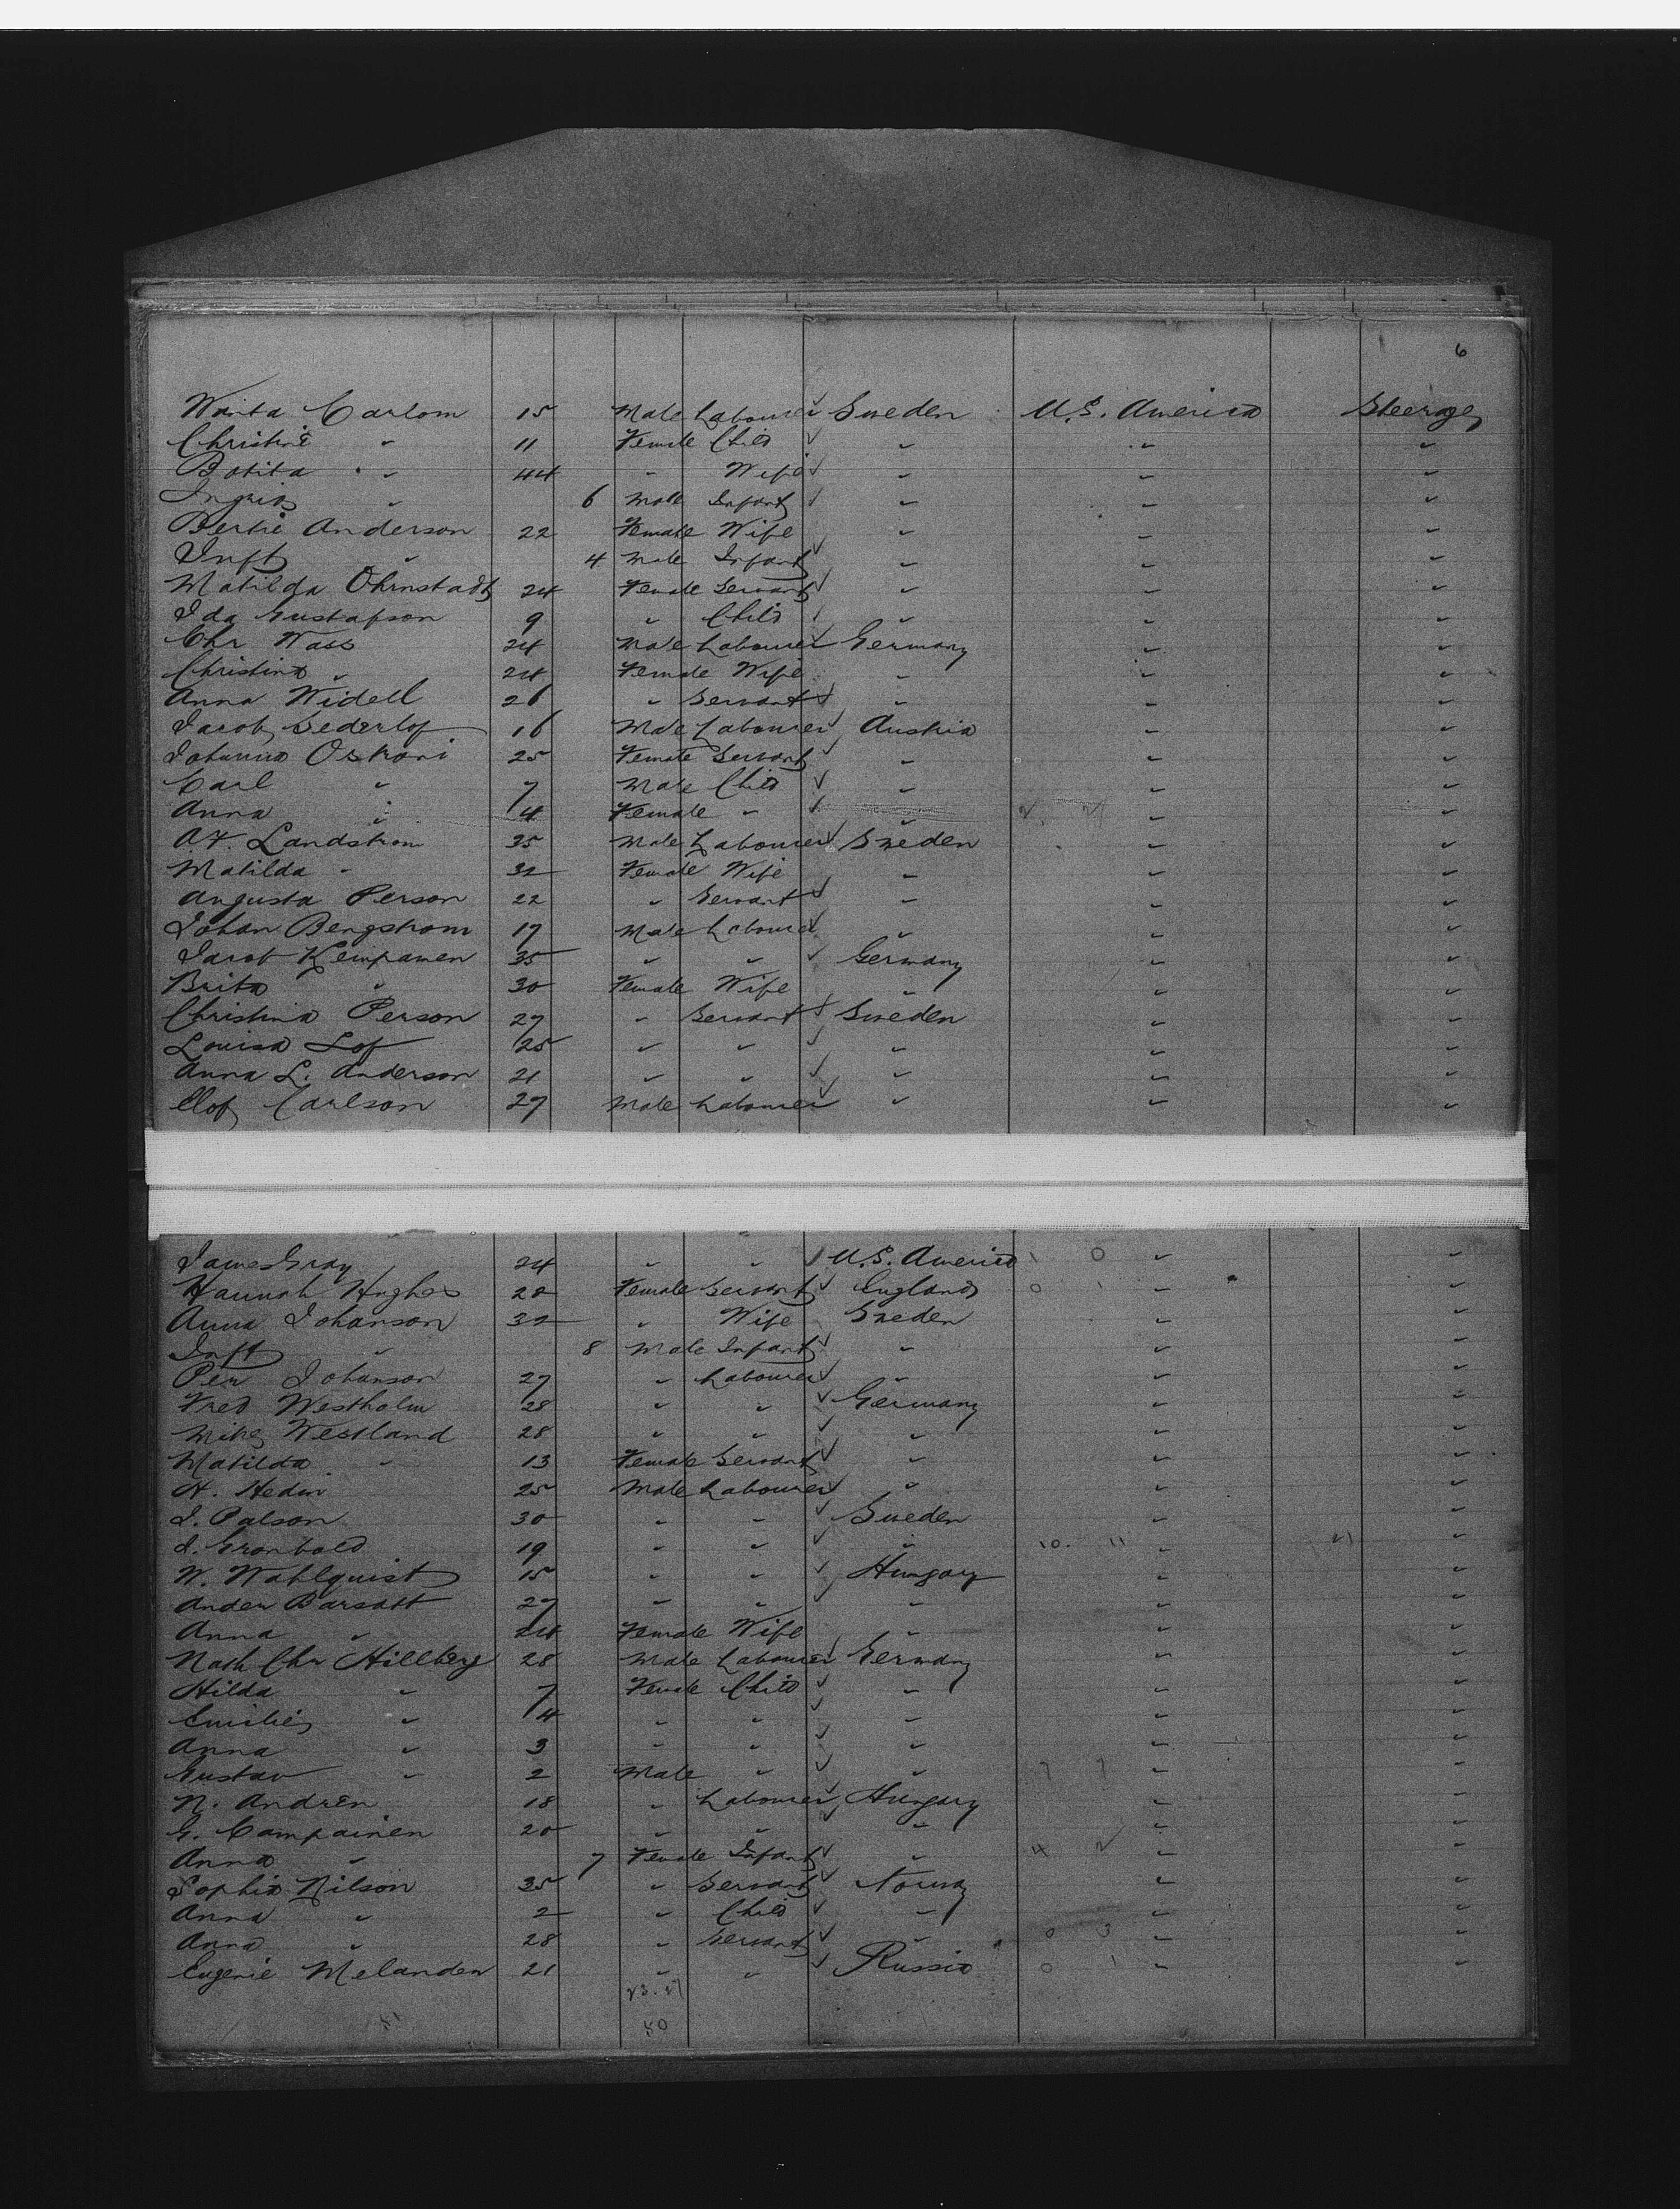 6
Wanta Carlom 15 Male Labourer ✓ Sweden U.S. America Steerage
Christine " 11 Female Child ✓ " " "
Botita " 44 " Wife ✓ " " "
Ingrid " 6 Male Infant ✓ " " "
Bertie Anderson 22 Female Wife " " "
Inft " 4 Male Infant ✓ " " "
Matilda Ohrnstadt 24 Female Servant ✓ " " "
Ida Gustafson 9 " Child ✓ " " "
Chr Wass 24 Male Labourer ✓ Germany " "
Christina " 24 Female Wife " " "
Anna Widell 26 " Servant ✓ " " "
Jacob Sederlof 16 Male Labourer ✓ Austria " "
Johanna Oskari 25 Female Servant ✓ " " "
Carl " 7 Male Child ✓ " " "
Anna " 4 Female " ✓ " " "
A.F. Landstrom 35 Male Labourer ✓ Sweden " "
Matilda " 32 Female Wife " " "
Augusta Person 22 " Servant ✓ " " "
Johan Bengstrom 17 Male Labourer ✓ " " "
Jacob Kempanen 35 " " ✓ Germany " "
Brita " 30 Female Wife " " "
Christina Person 27 " Servant ✓ Sweden " "
Louisa Lof 25 " " ✓ " " "
Anna L. Anderson 21 " " ✓ " " "
Olof Carlson 27 Male Labourer ✓ " " "
James Gray 24 " " ✓ U.S. America 1 0 " "
Hannah Hughes 20 Female Servant ✓ England 0 1 " "
Anna Johanson 32 " Wife Sweden " "
Inft " 8 Male Infant ✓ " " "
Per Johanson 27 " Labourer ✓ " " "
Fred Westholm 28 " " ✓ Germany " "
Mike Westland 28 " " ✓ " " "
Matilda " 13 Female Servant ✓ " " "
H. Hedin 25 Male Labourer ✓ " " "
J. Palson 30 " " ✓ Sweden " "
J. Gronbold 19 " " ✓ " 10. 11 " 21 "
W. Wahlquist 15 " " ✓ Hungary " "
Ander Barsatt 27 " " ✓ " " "
Anna " 24 Female Wife " " "
Math Chr Hillberg 28 Male Labourer ✓ Germany " "
Hilda " 7 Female Child ✓ " " "
Emilie " 4 " " ✓ " " "
Anna " 3 " " ✓ " " "
Gustav " 2 Male " ✓ " 7 7 " "
N. Andren 18 " Labourer ✓ Hungary " "
G. Campainen 20 " " ✓ " " "
Anna " 7 Female Infant ✓ " 4 2 " "
Sophia Nilson 35 " Servant ✓ Norway " "
Anna " 2 " Child ✓ " " "
Anna " 28 " Servant ✓ " 0 3 " "
Eugenie Melanden 21 " " ✓ Russia 0 1 " "